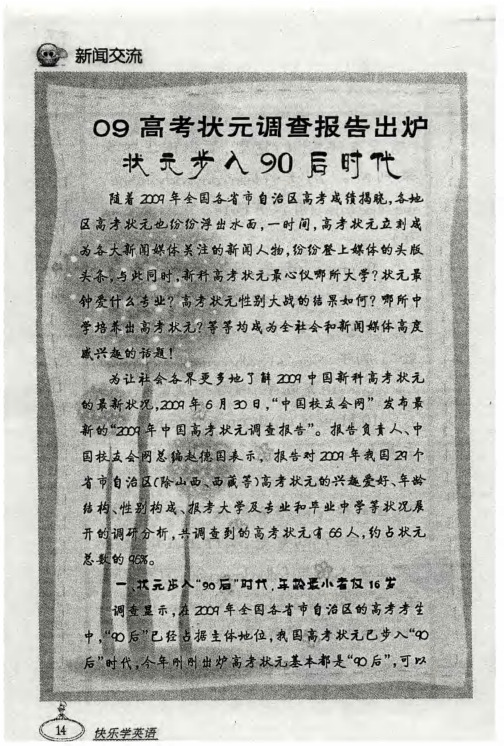 新闻交流
09高考状元调查报告出炉
状元步入90后时代
随着2009年全国各省市自治区高考成绩揭晓,各地
区高考状元也纷纷浮出水面,一时间,高考状元立刻成
为各大新闻媒体关注的新闻人物,纷纷登上媒体的头版
头条,与此同时,新科高考状元最心仪哪所大学?状元最
钟爱什么专业?高考状元性别大战的结果如何?哪所中
学培养出高考状元?等等均成为全社会和新闻媒体高度
感兴趣的话题!
为让社会各界更多地了解2009中国新科高考状元
的最新状况,2009年6月30日,“中国校友会网”发布最
新的“2009年中国高考状元调查报告”。报告负责人、中
国校友会网总编赵德国表示,报告对2009年我国29个
省市自治区(除山西、西藏等)高考状元的兴趣爱好、年龄
结构、性别构成、报考大学及专业和毕业中学等状况展
开的调研分析,共调查到的高考状元有66人,约占状元
总数的96%。
一、状元步入“90后”时代,年龄最小者仅16岁
调查显示,在2009年全国各省市自治区的高考考生
中,“90后”已经占据主体地位,我国高考状元已步入“90
后”时代,今年刚刚出炉高考状元基本都是“90后”,可以
14
快乐学英语